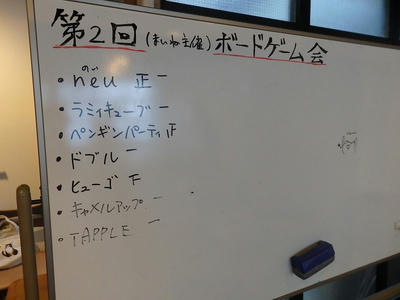 第2回(まいね主催)ボードゲーム会
のい
・neu 正一
・ラミィキューブ一
・ペンギンパーティ 下
・ドブル 一
・ヒューゴ 下
・キャメルアップ 一
・TAPPLE 一